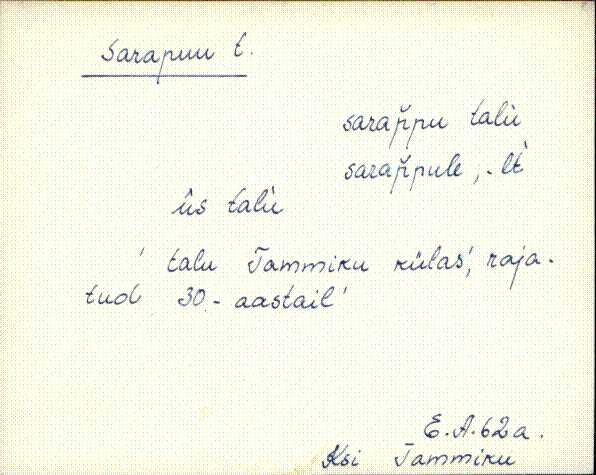 Sarapuu t.
sarap̆pu talù
sarap̆pule, -lt̀
ûs talù
' talu Tammiku külas', raja-
tud 30-aastail'
E.A. 62a.
Ksi Tammiku